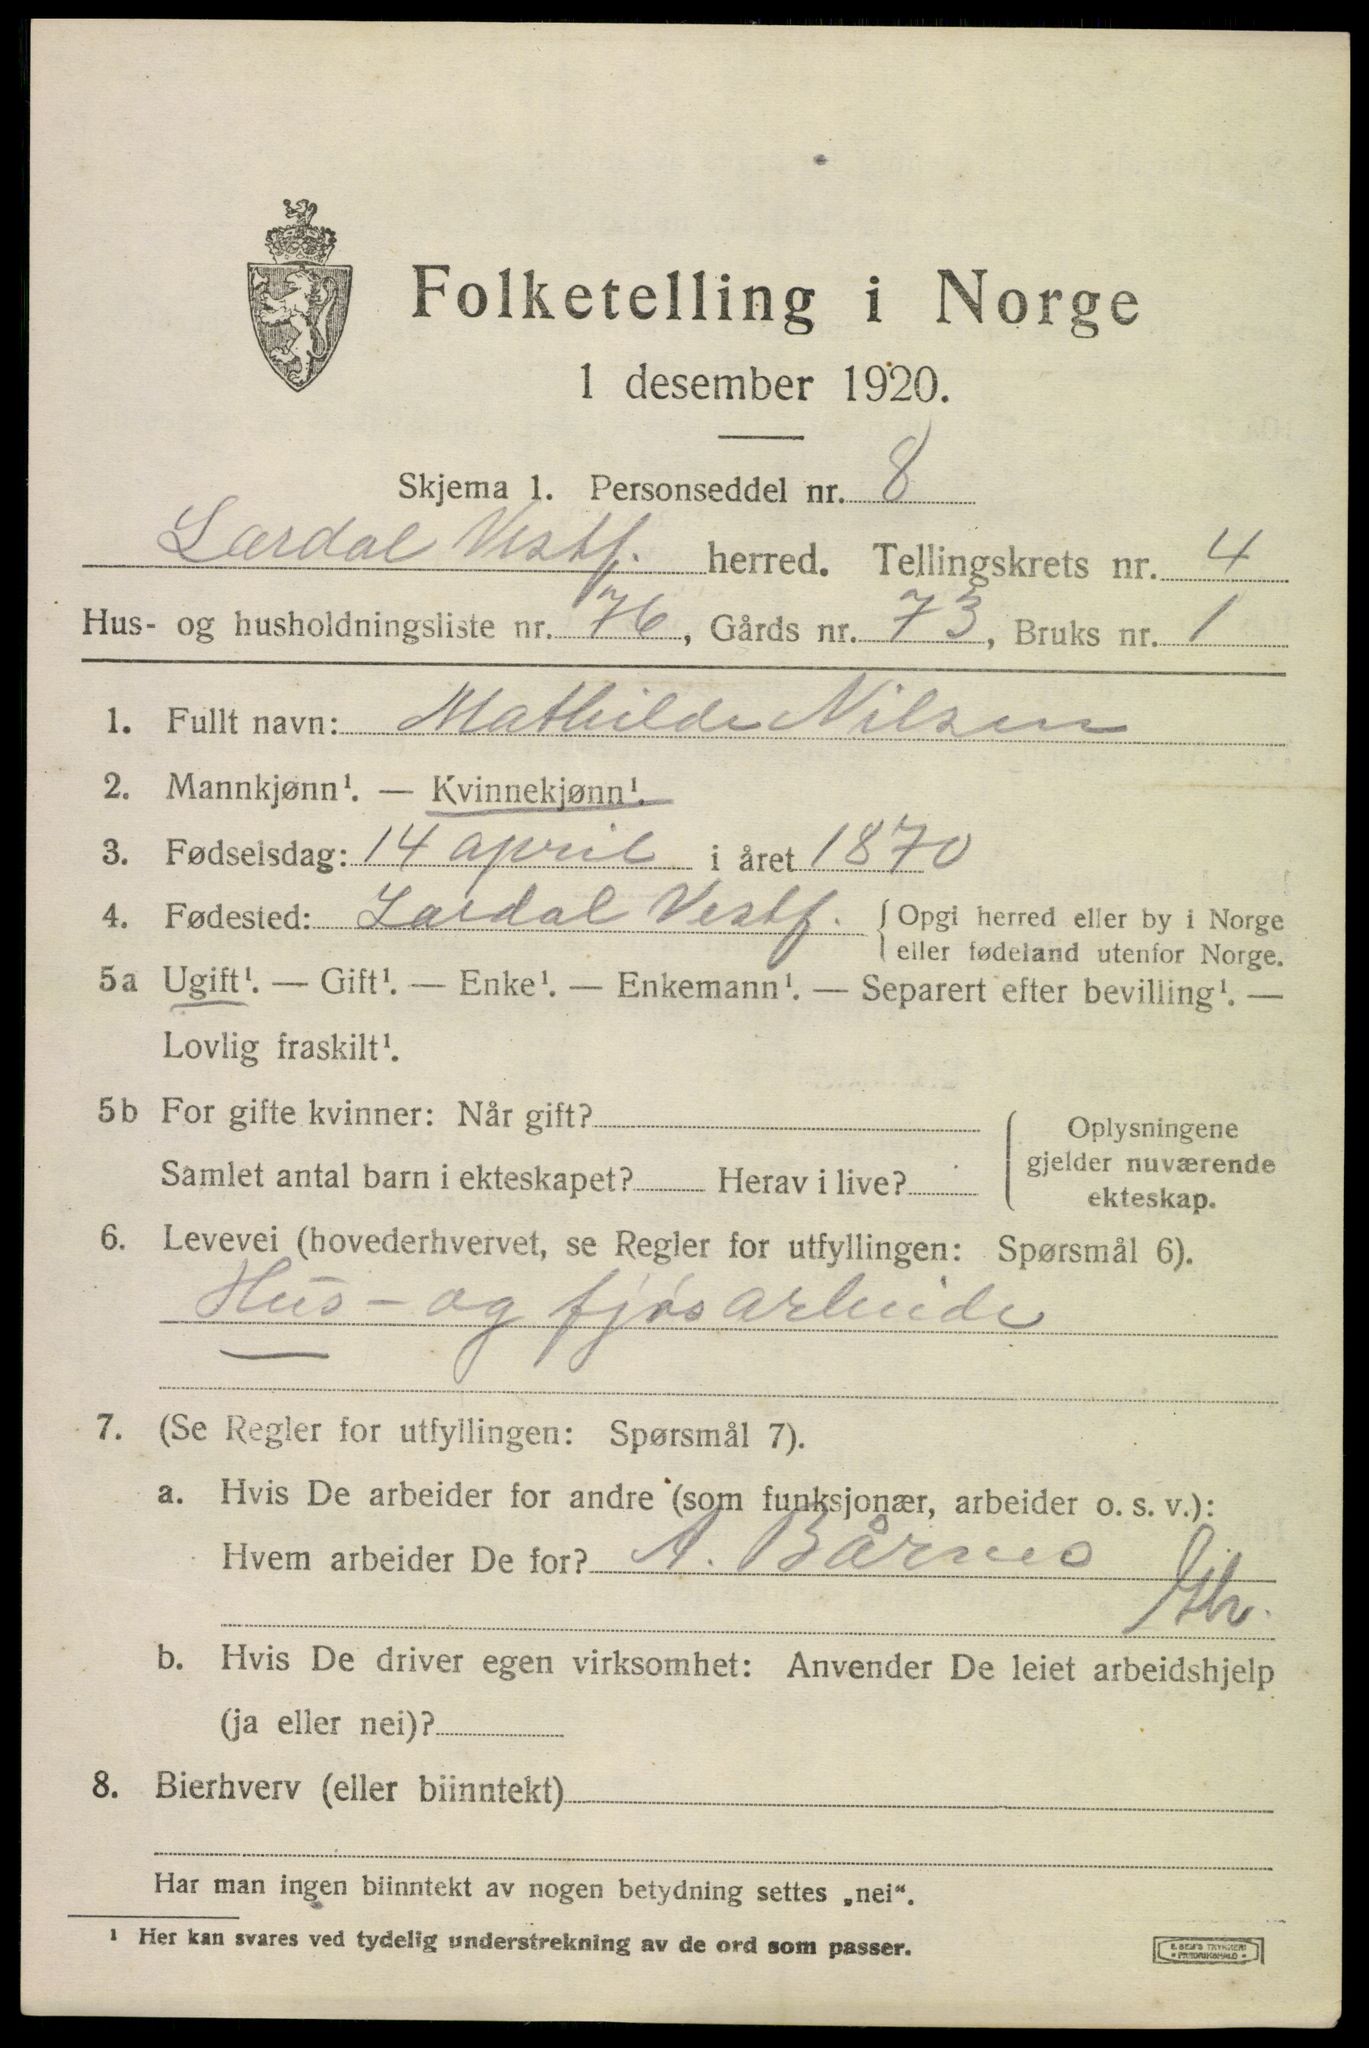 Folketelling i Norge
1 desember 1920.
Skjema 1. Personseddel nr. 8
Lardal Vestf. herred. Tellingskrets nr. 4
Hus- og husholdningsliste nr. 76, Gårds nr. 73, Bruks nr. 1
1. Fullt navn: Mathilde Nilsen
2. Mannkjønn¹. — Kvinnekjønn¹.
3. Fødselsdag: 14 april i året 1870
4. Fødested: Lardal Vestf. { Opgi herred eller by i Norge
eller fødeland utenfor Norge.
5a Ugift¹. — Gift¹. — Enke¹. — Enkemann¹. — Separert efter bevilling¹. —
Lovlig fraskilt¹.
5b For gifte kvinner: Når gift?
Samlet antal barn i ekteskapet? Herav i live?
Oplysningene
gjelder nuværende
ekteskap.
6. Levevei (hovederhvervet, se Regler for utfyllingen: Spørsmål 6).
Hus- og fjøsarbeide
7. (Se Regler for utfyllingen: Spørsmål 7).
a. Hvis De arbeider for andre (som funksjonær, arbeider o. s. v.):
Hvem arbeider De for? A. Bårnes
b. Hvis De driver egen virksomhet: Anvender De leiet arbeidshjelp
(ja eller nei)?
8. Bierhverv (eller biinntekt)
Har man ingen biinntekt av nogen betydning settes „nei“.
¹ Her kan svares ved tydelig understrekning av de ord som passer.
E. SEM'S TRYKKERI
FREDRIKSHALD